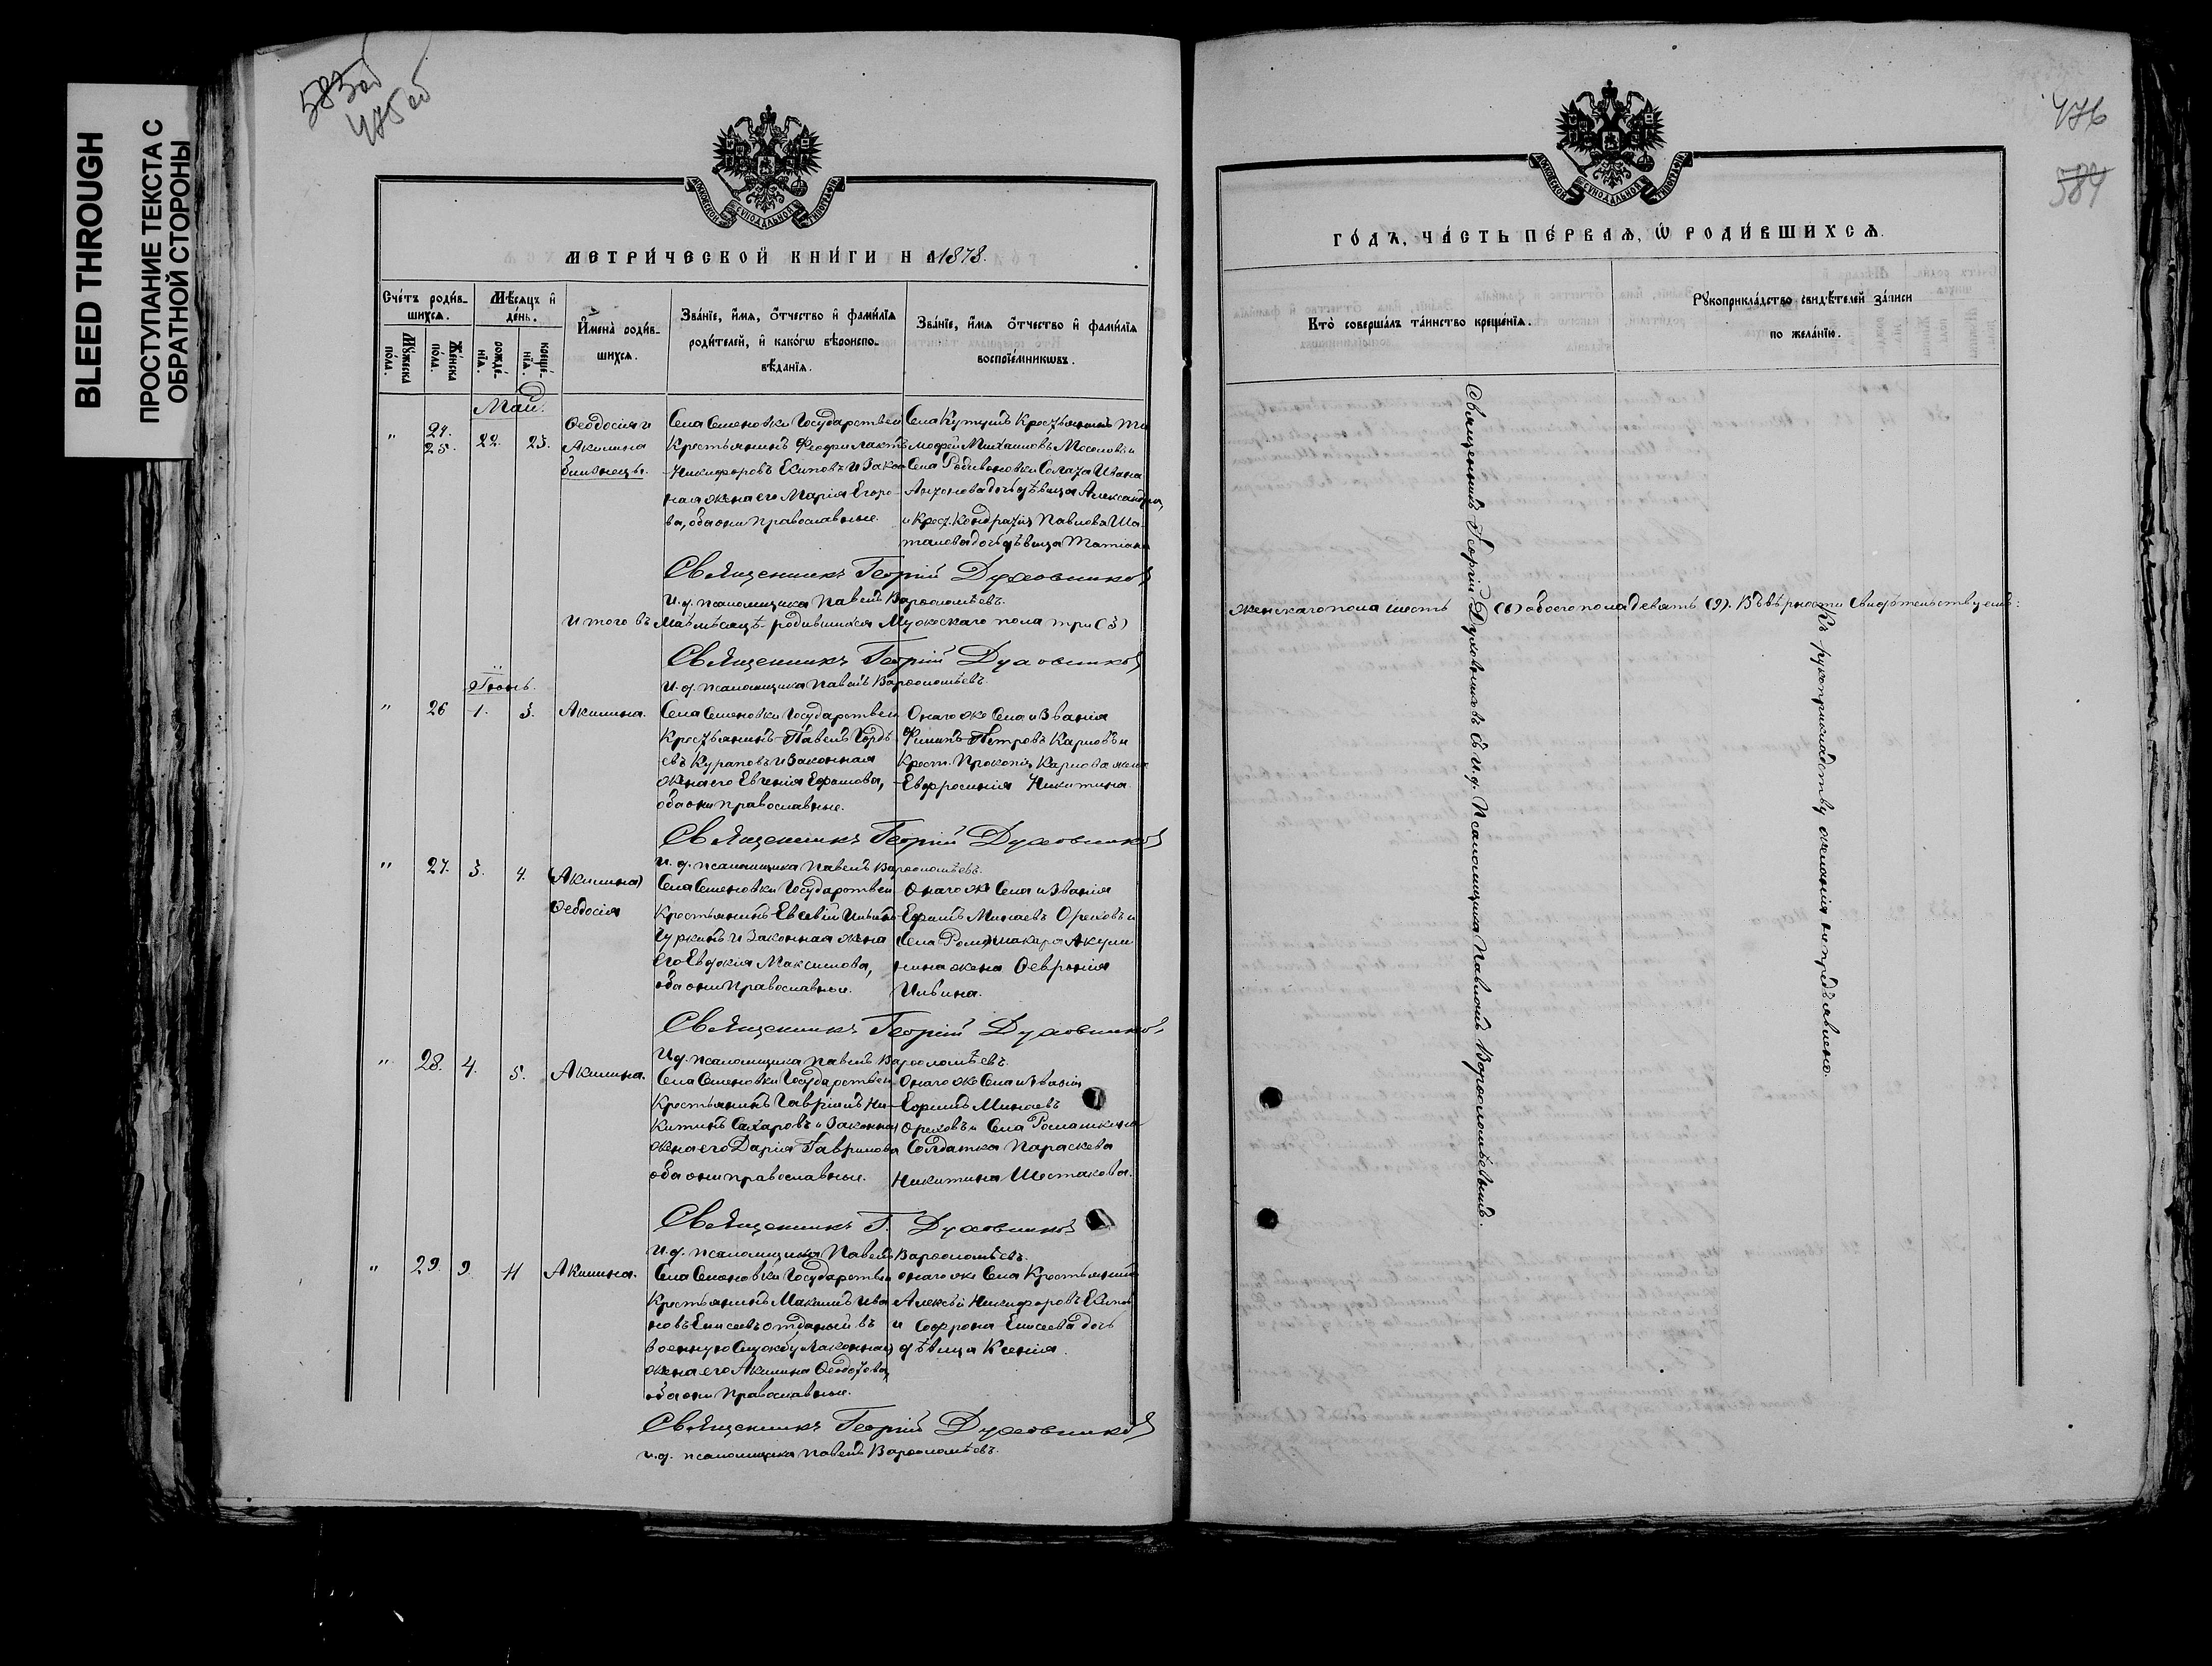 BLEED THROUGH
ПРОСТУПАНИЕ ТЕКСТА С
ОБРАТНОЙ СТОРОНЫ
583об
475об
МОСКОВСКОЙ СѴНОДАЛЬНОЙ ТИПОГРАФІИ
МЕТРИ́ЧЕСКОЙ КНИ́ГИ НА 1878.
Сче́тъ роди́в-
шихся.
Мѣ́сяцъ и҆
день.
Му́жеска по́ла.
Же́нска по́ла.
рожде́-
нїя.
креще́-
нїя.
И҆мена̀ роди́в-
шихся.
Зва́нїе, и҆́мя, ѻ҆́тчество и҆ фами́лїя
роди́телей, и҆ какѡ́гѡ вѣроиспо-
вѣ́данїя.
Зва́нїе, и҆́мя ѻ҆́тчество и҆ фами́лїя
воспрїе́мникѡвъ.
Май.
" 24. 25. 22. 23. Ѳеодосія и
Акилина
близнецы.
Села Семеновки Государствен
Крестьянинъ Феофилактъ
Никифоровъ Екиповъ и Закон
ная жена его Марія Егоро-
ва, оба они Православные.
Села Кутушъ Крестьянинъ Ти
мофей Михаиловъ Мосоловъ и
Села Родивоновки Солдата Ивана
Антонова дочь дѣвица Александра
и Крест. Кондратія Павлова Ша-
талова дочь дѣвица Татіана
Священникъ Георгій Духовников
И. д. псаломщика Павелъ Варѳоломѣевъ.
Итого въ Маѣ мѣсяцѣ родившихся Мужескаго пола три (3)
Священникъ Георгій Духовников
И. д. псаломщика Павелъ Варѳоломѣевъ
Іюнь.
" 26 1. 3. Акилина.
Села Семеновки Государствен
Крестьянинъ Павелъ Гордѣ
евъ Курановъ и Законная
жена его Евгенія Ефимова,
оба они православные.
Онаго же Села и Званія
Филипъ Петровъ Карповъ и
Крест. Прокопія Карпова жена
Евфросинія Никитина
Священникъ Георгій Духовников
И. д. псаломщика Павелъ Варѳоломѣевъ.
" 27. 3. 4. (Акилина)
Ѳеодосія
Села Семеновки Государствен
Крестьянинъ Евсевій Ильинъ
Чуркинъ и Законная жена
его Евдокія Максимова,
оба они Православные.
Онаго же Села и Званія
Ефимъ Минаевъ Ореховъ и
Села Ромашкира Акули
нина жена Ѳевронія
Ильина.
Священникъ Георгій Духовников
И. д. псаломщика Павелъ Варѳоломѣевъ
" 28. 4. 5. Акилина.
Села Семеновки Государствен
Крестьянинъ Гавріилъ Ни-
китинъ Сахаровъ и Законная
жена его Дарія Гаврилова
оба они православные.
Онаго же Села и Званія
Ефимъ Минаевъ
Ореховъ и Села Ромашкина
Солдатка Параскева
Никитина Шестакова.
Священникъ Г. Духовников
И. д. псаломщика Павелъ Варѳоломѣевъ.
" 29. 9. 11 Акилина.
Села Семеновки Государствен
Крестьянинъ Максимъ Ива
новъ Елисеевъ отданый въ
военную Службу Законная
жена его Акилина Ѳедотова,
оба они Православные.
онаго же Села Крестьянинъ
Алексѣй Никифоровъ Екипов
и Софрона Елисеева дочь
дѣвица Ксенія.
Священникъ Георгій Духовников
и. д. псаломщика Павелъ Варѳоломѣевъ.
476
584
МОСКОВСКОЙ СѴНОДАЛЬНОЙ ТИПОГРАФІИ
ГО́ДЪ, ЧА́СТЬ ПЕ́РВАЯ, Ѡ҆ РОДИ́ВШИХСЯ.
Кто̀ соверша́лъ та́инство креще́нїя.
Рꙋкоприкла́дство свидѣ́телей за́писи
по жела́нїю.
женскаго пола шесть (6) обоего пола девять (9). Въ вѣрности Свидѣтельствуемъ:
Священникъ Георгій Духовниковъ съ и. д. Псаломщика Павломъ Варѳоломѣевымъ.
Къ рукоприкладству желанія не предъявлено.